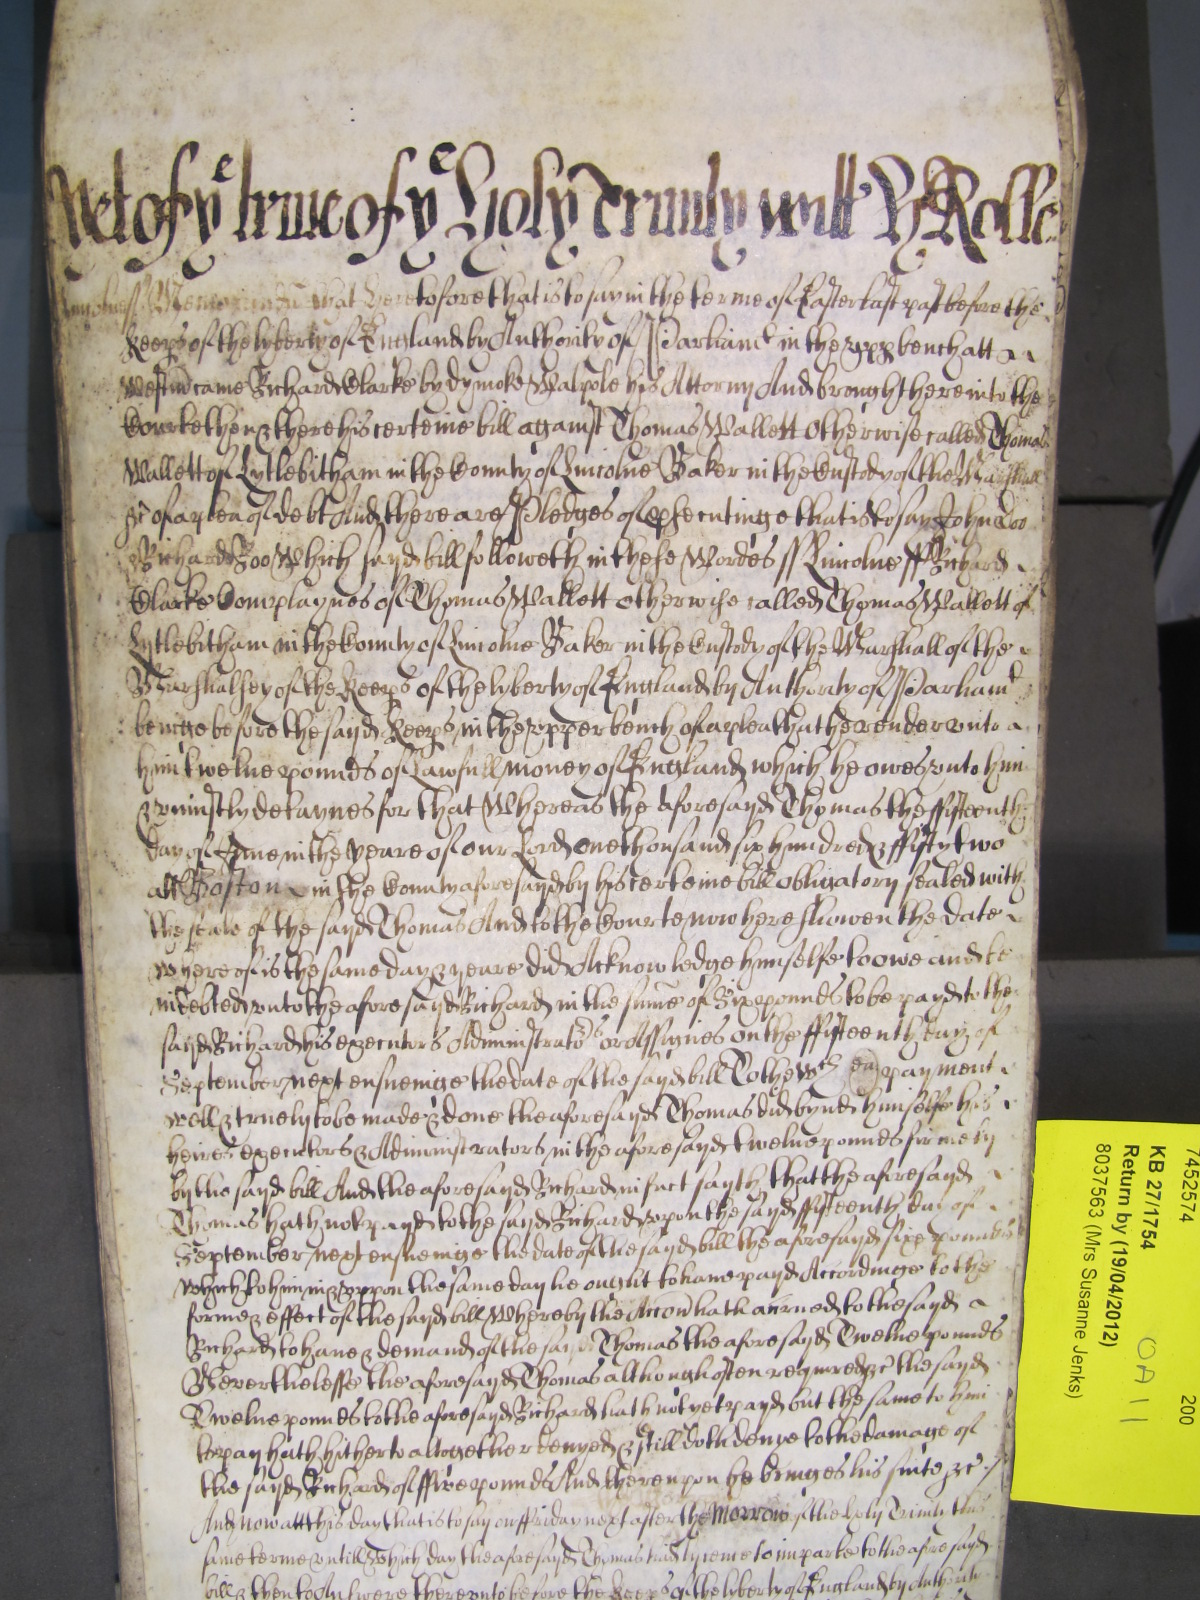 Yet of ye terme of ye Holy Trinity with Rolle
Memorandum that heretofore that is to say in the terme of Easter last past before the
Keeps of the lyberty of England by Authority of Parliamt in the upp bench att
Westmr came Richard Clarke by dymoke Walpole his Attorny And brought here into the
Courte then & there his certeine bill against Thomas Wallett otherwise called Thomas
Wallett of Lytlebitham in the County of Lincolne Baker in the Custody of the Marshall
&c of a plea of debt And there are Pledges of psecutinge that is to say John Doo
& Richard Roo Which sayd bill followeth in these Wordes ss Lincolne ss Richard
Clarke Complaynes of Thomas Wallett otherwise called Thomas Wallett of
Lytlebitham in the County of Lincolne Baker in the Custody of the Marshall of the
Marshalsey of the Keeps of the lyberty of England by Authority of Parliamt
beinge before the sayd Keeps in the upper bench of a plea that he render unto
him twelve pounds of Lawfull money of England which he owes unto him
& uniustly detaynes for that Whereas the aforesayd Thomas the ffifteenth
day of June in the yeare of our Lord one thousand six hundred & ffifty two
att Boston in the County aforesayd by his certeine bill obligatory sealed with
the seale of the sayd Thomas And to the Courte now here shewen the date
whereof is the same day & yeare did Acknowledge himselfe to owe and be
indebted unto the aforesayd Richard in the sume of Sixe pounds to be payd to the
sayd Richard his executors Administrators or Assignes on the ffifteenth day of
September next ensueinge the date of the sayd bill To the wch payment
well & truely to be made & done the aforesayd Thomas did bynd himselfe his
heires executors & Administrators in the aforesayd twelve pounds firmely
by the sayd bill And the aforesayd Richard in fact sayth that the aforesayd
Thomas hath not payd to the sayd Richard uppon the sayd ffifteenth day of
September next ensueinge the date of the sayd bill the aforesayd sixe pounds
which to him in & uppon the same day he ought to have payd Accordinge to the
forme & effect of the sayd bill Whereby the Accon hath accrued to the sayd
Richard to have & demand of the sayd Thomas the aforesayd Twelve pounds
Neverthelesse the aforesayd Thomas although often required &c the sayd
Twelve pounds to the aforesayd Richard hath not yet payd but the same to him
to pay hath hitherto altogether denyed & still doth denye to the damage of
the sayd Richard of ffive pounds And thereupon he bringes his suite &c
And now att this day that is to say on ffriday next after the Morrow of the holy Trinity this
same terme untill Which day the aforesayd Thomas had lycence to imparle to the aforesayd
bill & then to Answere thereunto before the Keeps of the lyberty of England by Authority
7452574
200
KB 27/1754
Return by (19/04/2012)
8037563 (Mrs Susanne Jenks)
OA 11